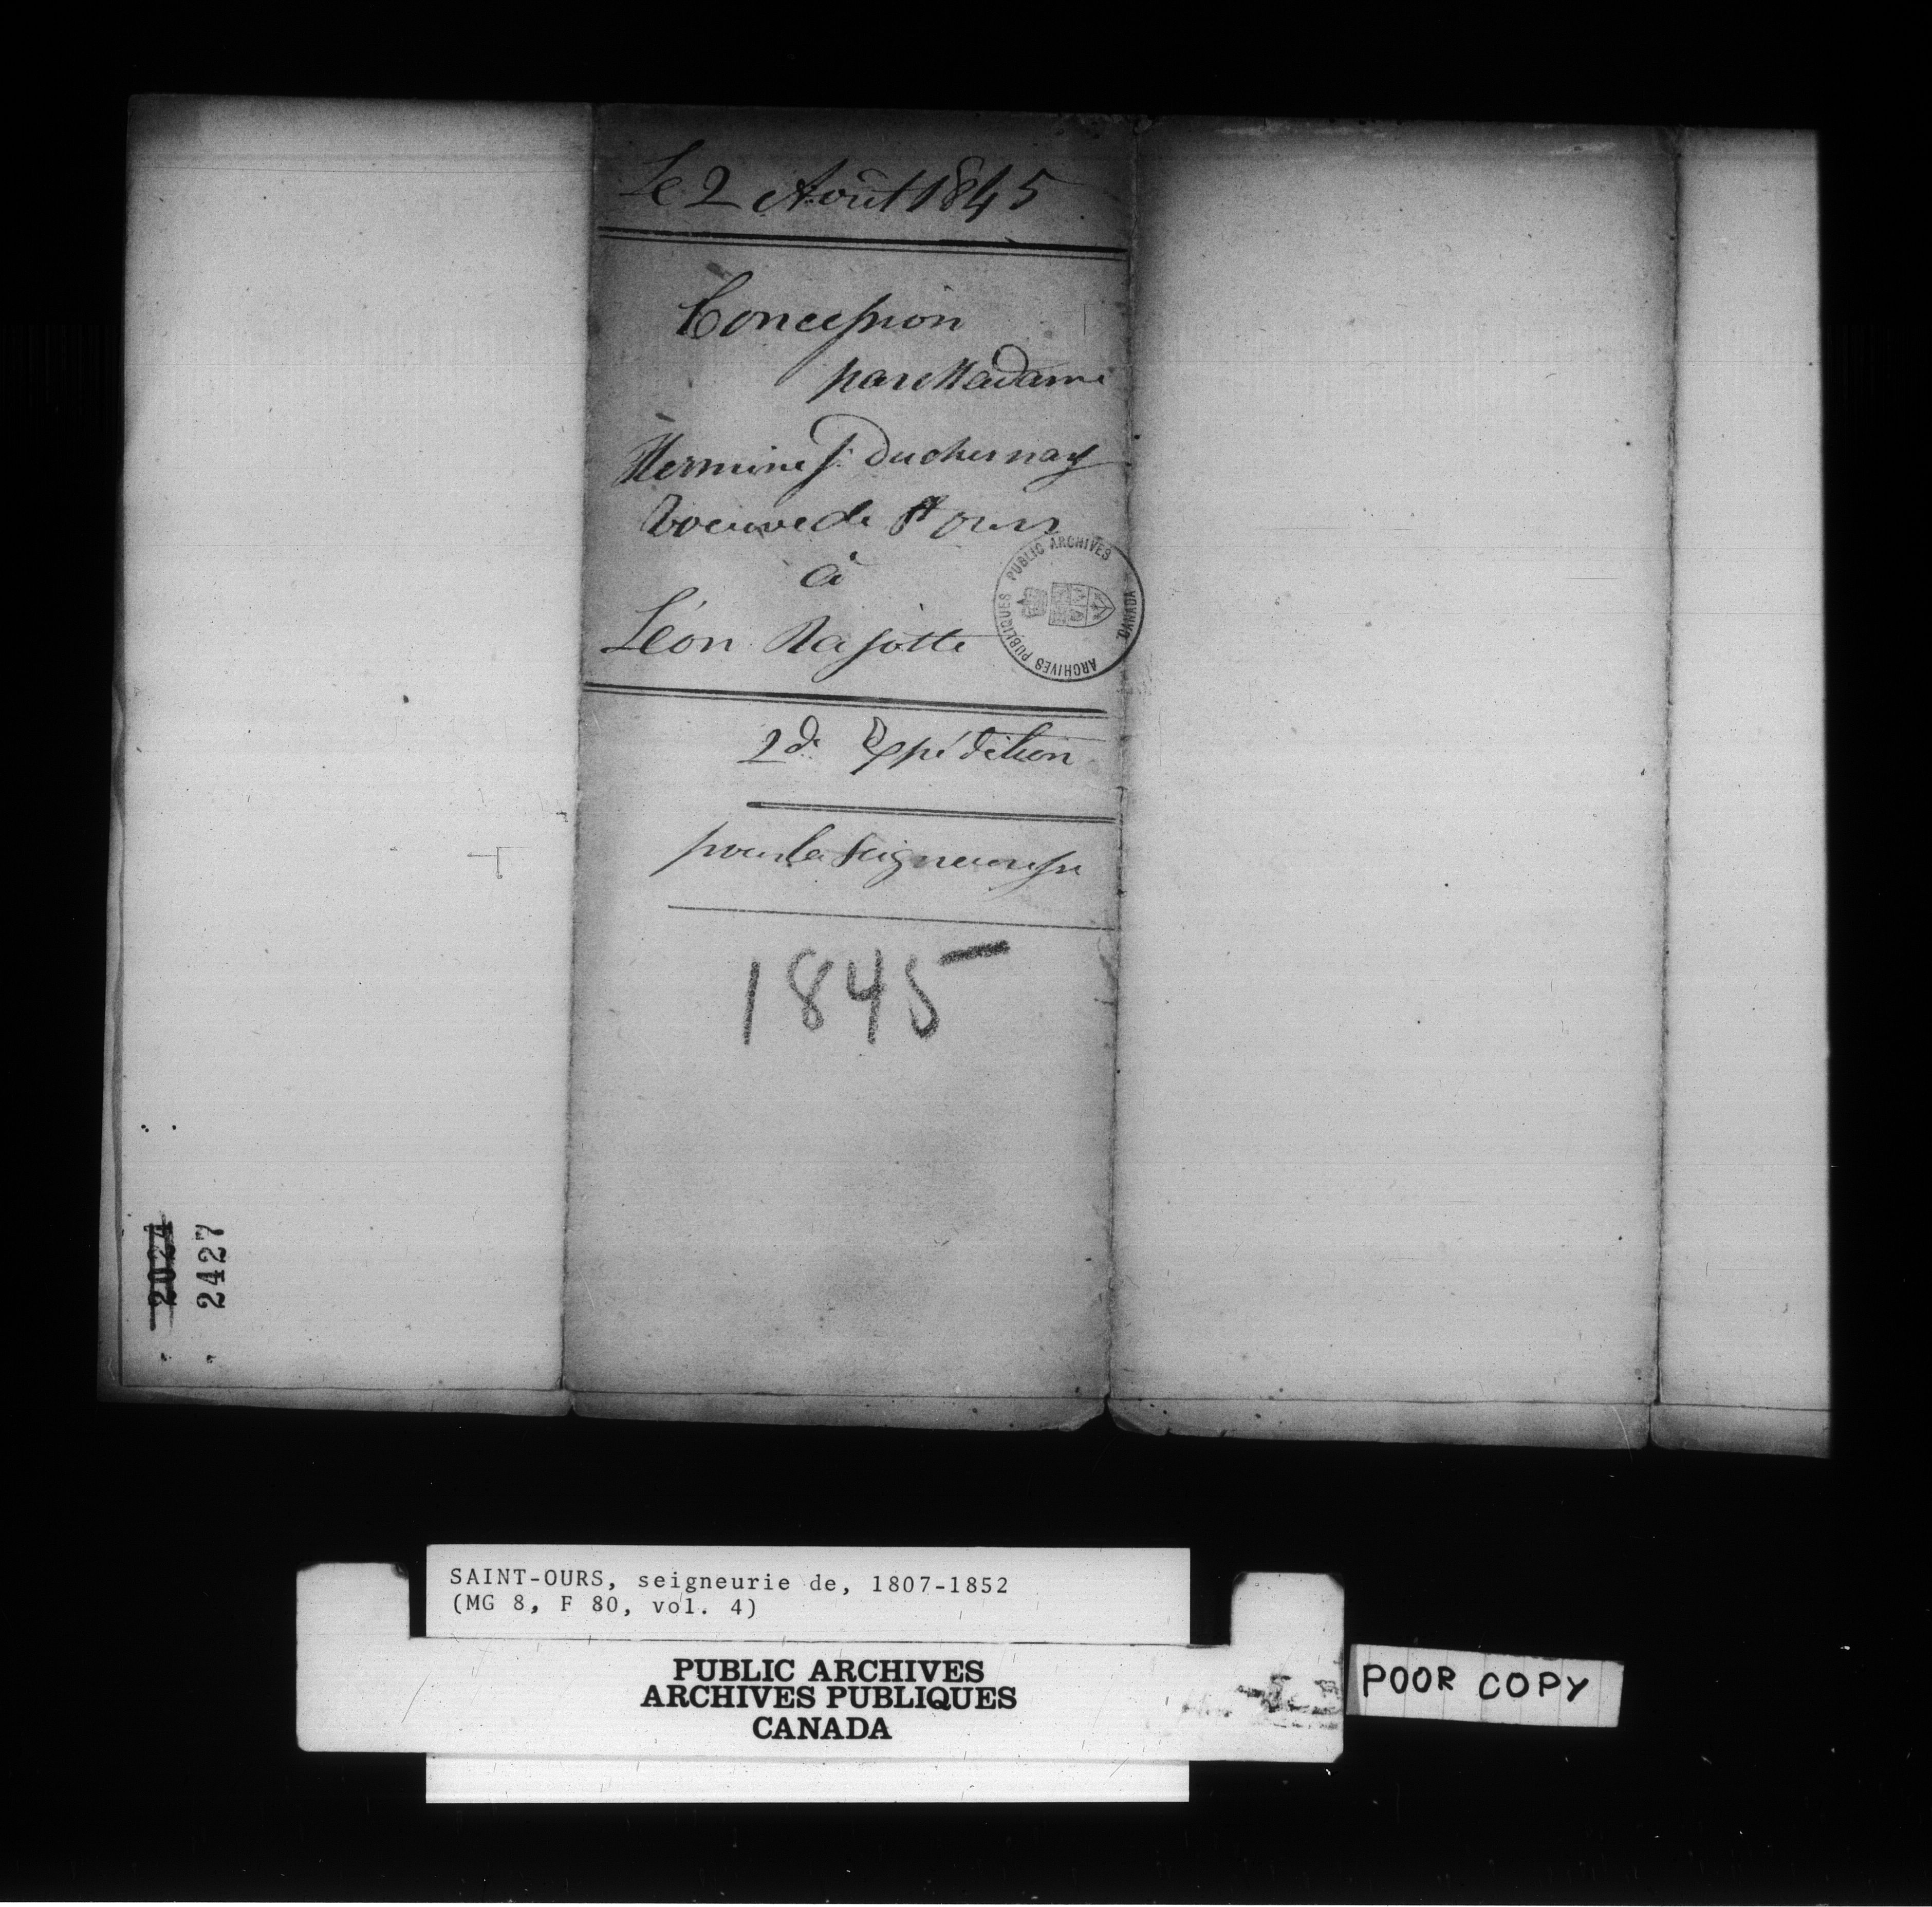 Le 2 Août 1845
Concession
par Madame
Hermine J. Duchesnay
Veuve de St Ours
à
Léon Lajotte
PUBLIC ARCHIVES
ARCHIVES PUBLIQUES
CANADA
2de Expédition
pour la Seigneuresse
1845
2024
2427
SAINT-OURS, seigneurie de, 1807-1852
(MG 8, F 80, vol. 4)
PUBLIC ARCHIVES
ARCHIVES PUBLIQUES
CANADA
POOR COPY